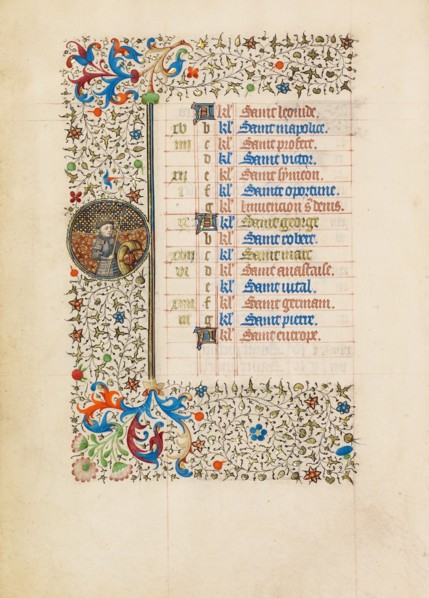 A kl' Saint leonide.
xv b kl' Saint mapolice.
iiii c kl' Saint profere.
d kl' Saint victor.
xii e kl' Saint symeon.
i f kl' Saint oportune.
g kl' Linvencion s denis.
ix A kl' Saint george
b kl' Saint robert.
xvii c kl' Saint marc
vi d kl' Saint anastaise.
e kl' Saint vital.
xiiii f kl' Saint germain.
iii g kl' Saint pierre.
A kl' Saint eutrope.